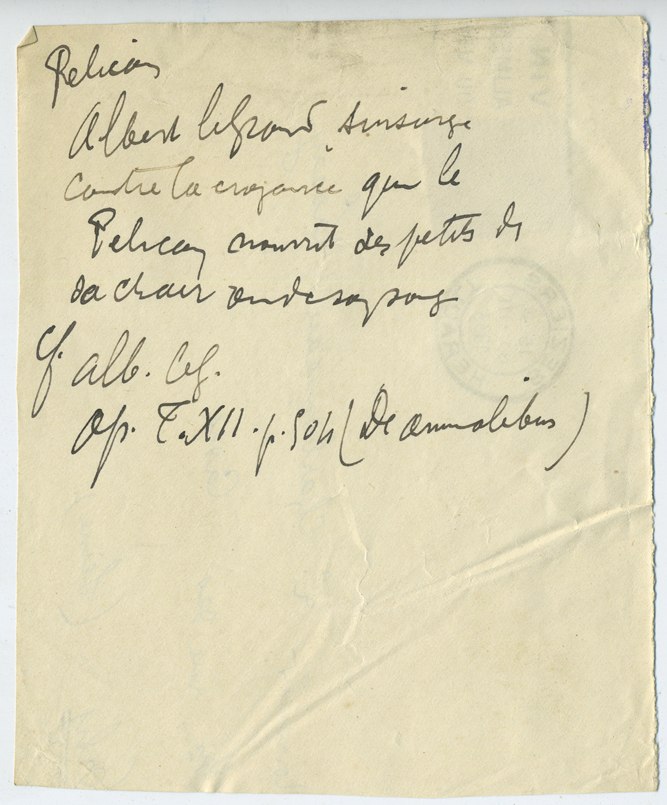 Pelican
Albert le Grand s'insurge
contre la croyance que le
Pelican nourrit ses petits de
sa chair ou de son sang
cf. alb. leg.
op. T. XII. p. 504 (De animalibus)